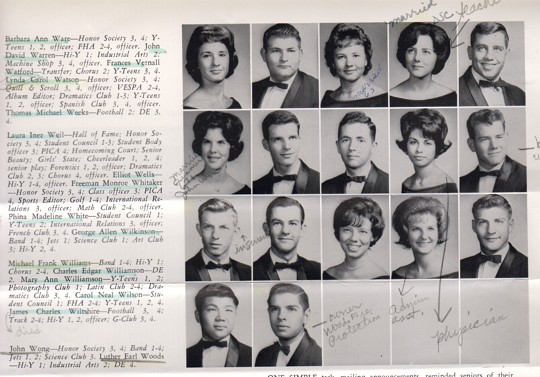 Barbara Ann Ware—Honor Society 3, 4; Y-
Teens 1, 2, officer; FHA 2-4, officer. John
David Warren—Hi-Y 1; Industrial Arts 2;
Machine Shop 3, 4, officer. Frances Vernall
Watford—Transfer; Chorus 2; Y-Teens 3, 4.
Lynda Carol Watson—Honor Society 3, 4;
Quill & Scroll 3, 4, officer; VESPA 2-4,
Album Editor; Dramatics Club 1-3; Y-Teens
1, 2, officer; Spanish Club 3, 4, officer.
Thomas Michael Weeks—Football 2; DE 3,
4.
Laura Inez Weil—Hall of Fame; Honor So-
ciety 3, 4; Student Council 1-3; Student Body
officer 3; PICA 4; Homecoming Court; Senior
Beauty; Girls' State; Cheerleader 1, 2, 4;
senior play; Forensics 1, 2, officer; Dramatics
Club 2, 3; Chorus 4, officer. Elliot Wells—
Hi-Y 1-4, officer. Freeman Monroe Whitaker
—Honor Society 3, 4; Class officer 3; PICA
4, Sports Editor; Golf 1-4; International Re-
lations 3, officer; Math Club 2-4, officer.
Phina Madeline White—Student Council 1;
Y-Teens 2; International Relations 3, officer;
French Club 3, 4. George Allen Wilkinson—
Band 1-4; Jets 1; Science Club 1; Art Club
3; Hi-Y 2, 4.
Michael Frank Williams—Band 1-4; Hi-Y 1;
Chorus 2-4. Charles Edgar Williamson—DE
2. Mary Ann Williamson—Y-Teens 1, 2;
Photography Club 1; Latin Club 2-4; Dra-
matics Club 3, 4. Carol Neal Wilson—Stu-
dent Council 1; FHA 2-4; Y-Teens 1, 2, 4.
James Charles Wiltshire—Football 3, 4;
Track 2-4; Hi-Y 1, 2, officer; G-Club 3, 4.
dies
John Wong—Hi-Y 3, 4; Band 1-4;
Jets 1, 2; Science Club 3. Luther Earl Woods
—Hi-Y 1; Industrial Arts 2; DE 4.
married
SC teacher
insurance
owner
Protection
Admin
asst.
physician
ONE SIMPLE task, mailing announcements, reminded seniors of their